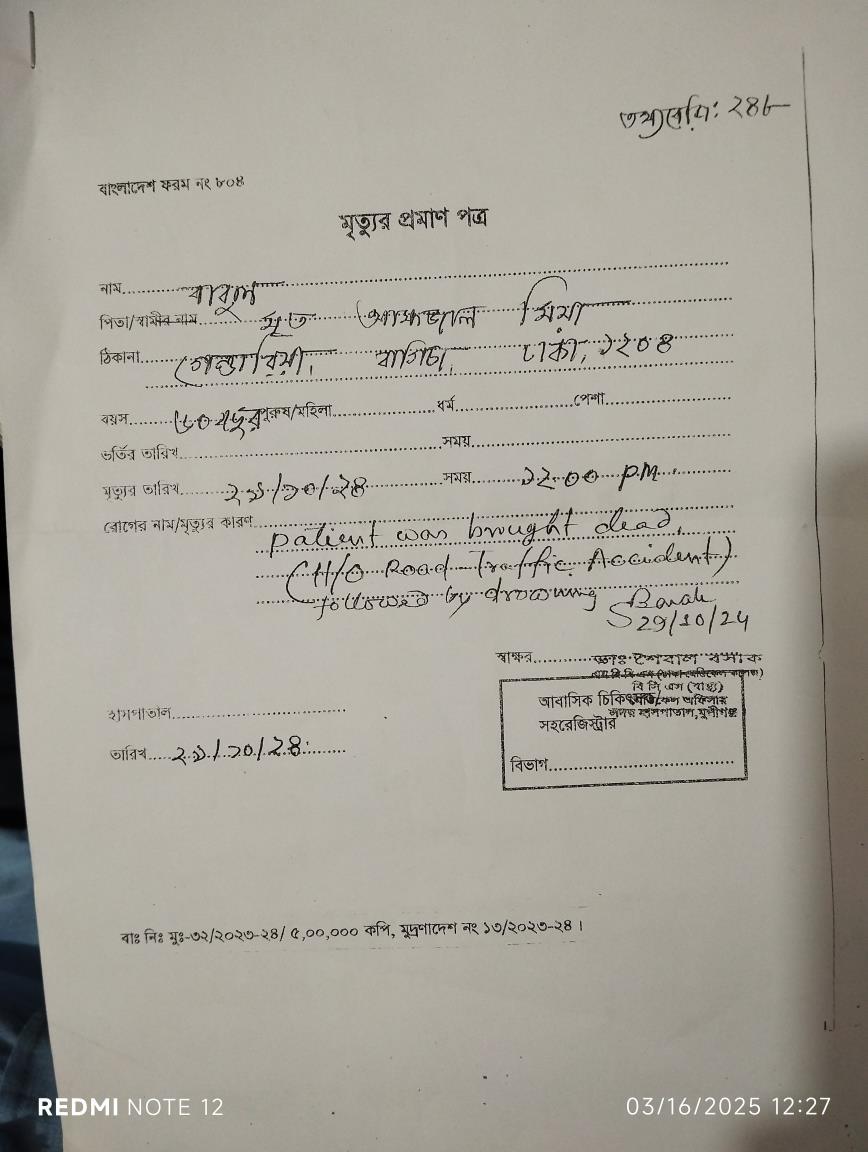 বাংলাদেশ ফরম নং ৮০৪
মৃত্যুর প্রমাণ পত্র
নাম.....বাবুল
পিতা/স্বামীর নাম.....মৃত মিয়া
ঠিকানা.....গেন্ডারিয়া, বাগিচা, ঢাকা, ১২০৪
বয়স.....৬০ বছর পুরুষ/মহিলা.....ধর্ম.....পেশা.....
ভর্তির তারিখ.....সময়.....
মৃত্যুর তারিখ.....২৯/১০/২৪ সময়.....১২:০০ P.M.
রোগের নাম/মৃত্যুর কারণ.....patient was brought dead,
(H/O Road Traffic Accident)
followed by drowning
29/10/24
স্বাক্ষর.....ডাঃ শৈবাল বসাক
বি সি এস (স্বাস্থ্য)
আবাসিক চিকিৎসক/
সহরেজিস্ট্রার
হাসপাতাল.....
তারিখ.....২৯/১০/২৪
বিভাগ.....
বাঃ নিঃ মুঃ-৩২/২০২৩-২৪/ ৫,০০,০০০ কপি, মুদ্রণাদেশ নং ১৩/২০২৩-২৪ ।
REDMI NOTE 12
03/16/2025 12:27